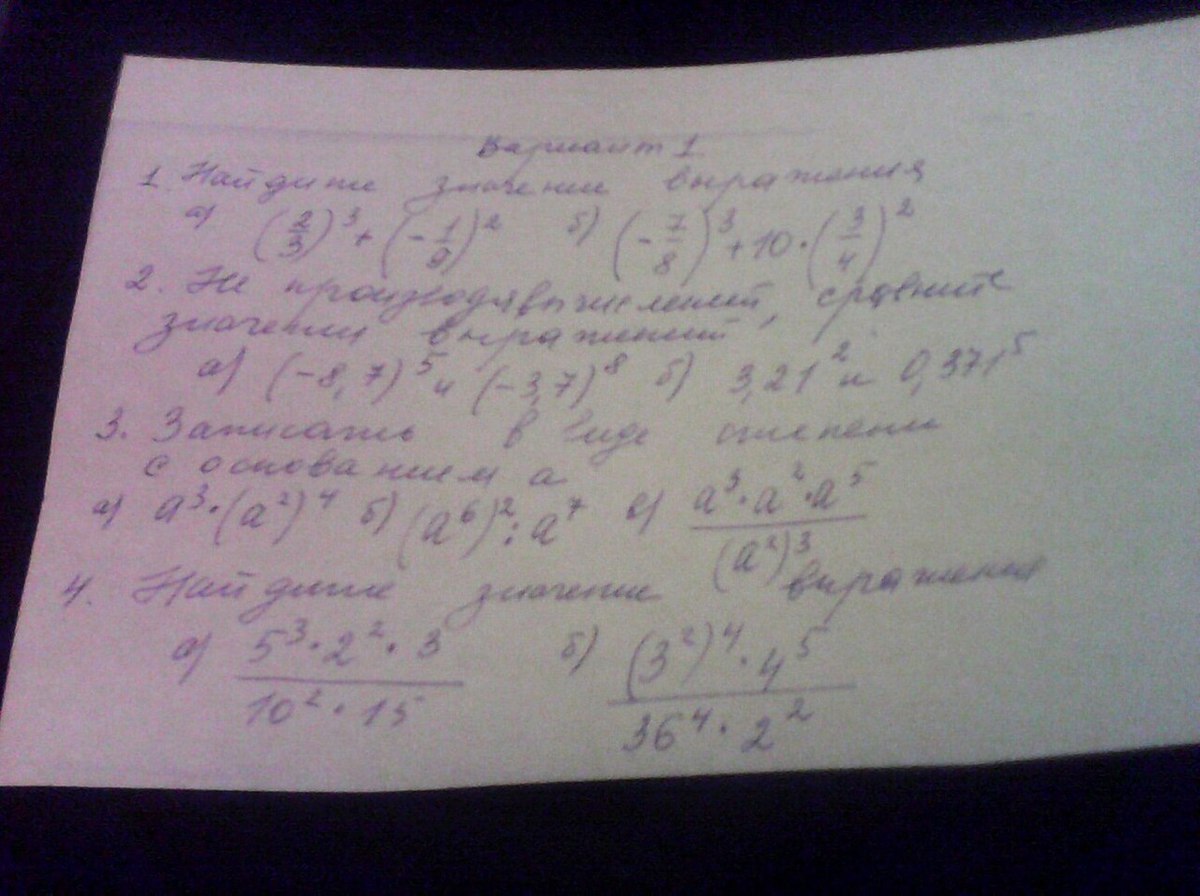 Вариант 1
1. Найдите значение выражения
а) (2/3)^3 + (-1/9)^2 б) (-7/8)^3 + 10 · (3/4)^2
2. Не производя вычислений, сравните
значения выражений
а) (-8,7)^5 и (-3,7)^8 б) 3,21^2 и 0,371^5
3. Записать в виде степени
с основанием а
а) a^3 · (a^2)^4 б) (a^6)^2 : a^7 в) (a^3 · a^2 · a^5)/(a^2)^3
4. Найдите значение выражения
а) (5^3 · 2^2 · 3)/(10^2 · 15) б) ((3^2)^4 · 4^5)/(36^4 · 2^2)